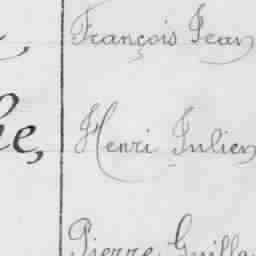 François Jean
Henri Julien
he,
Pierre Guilla